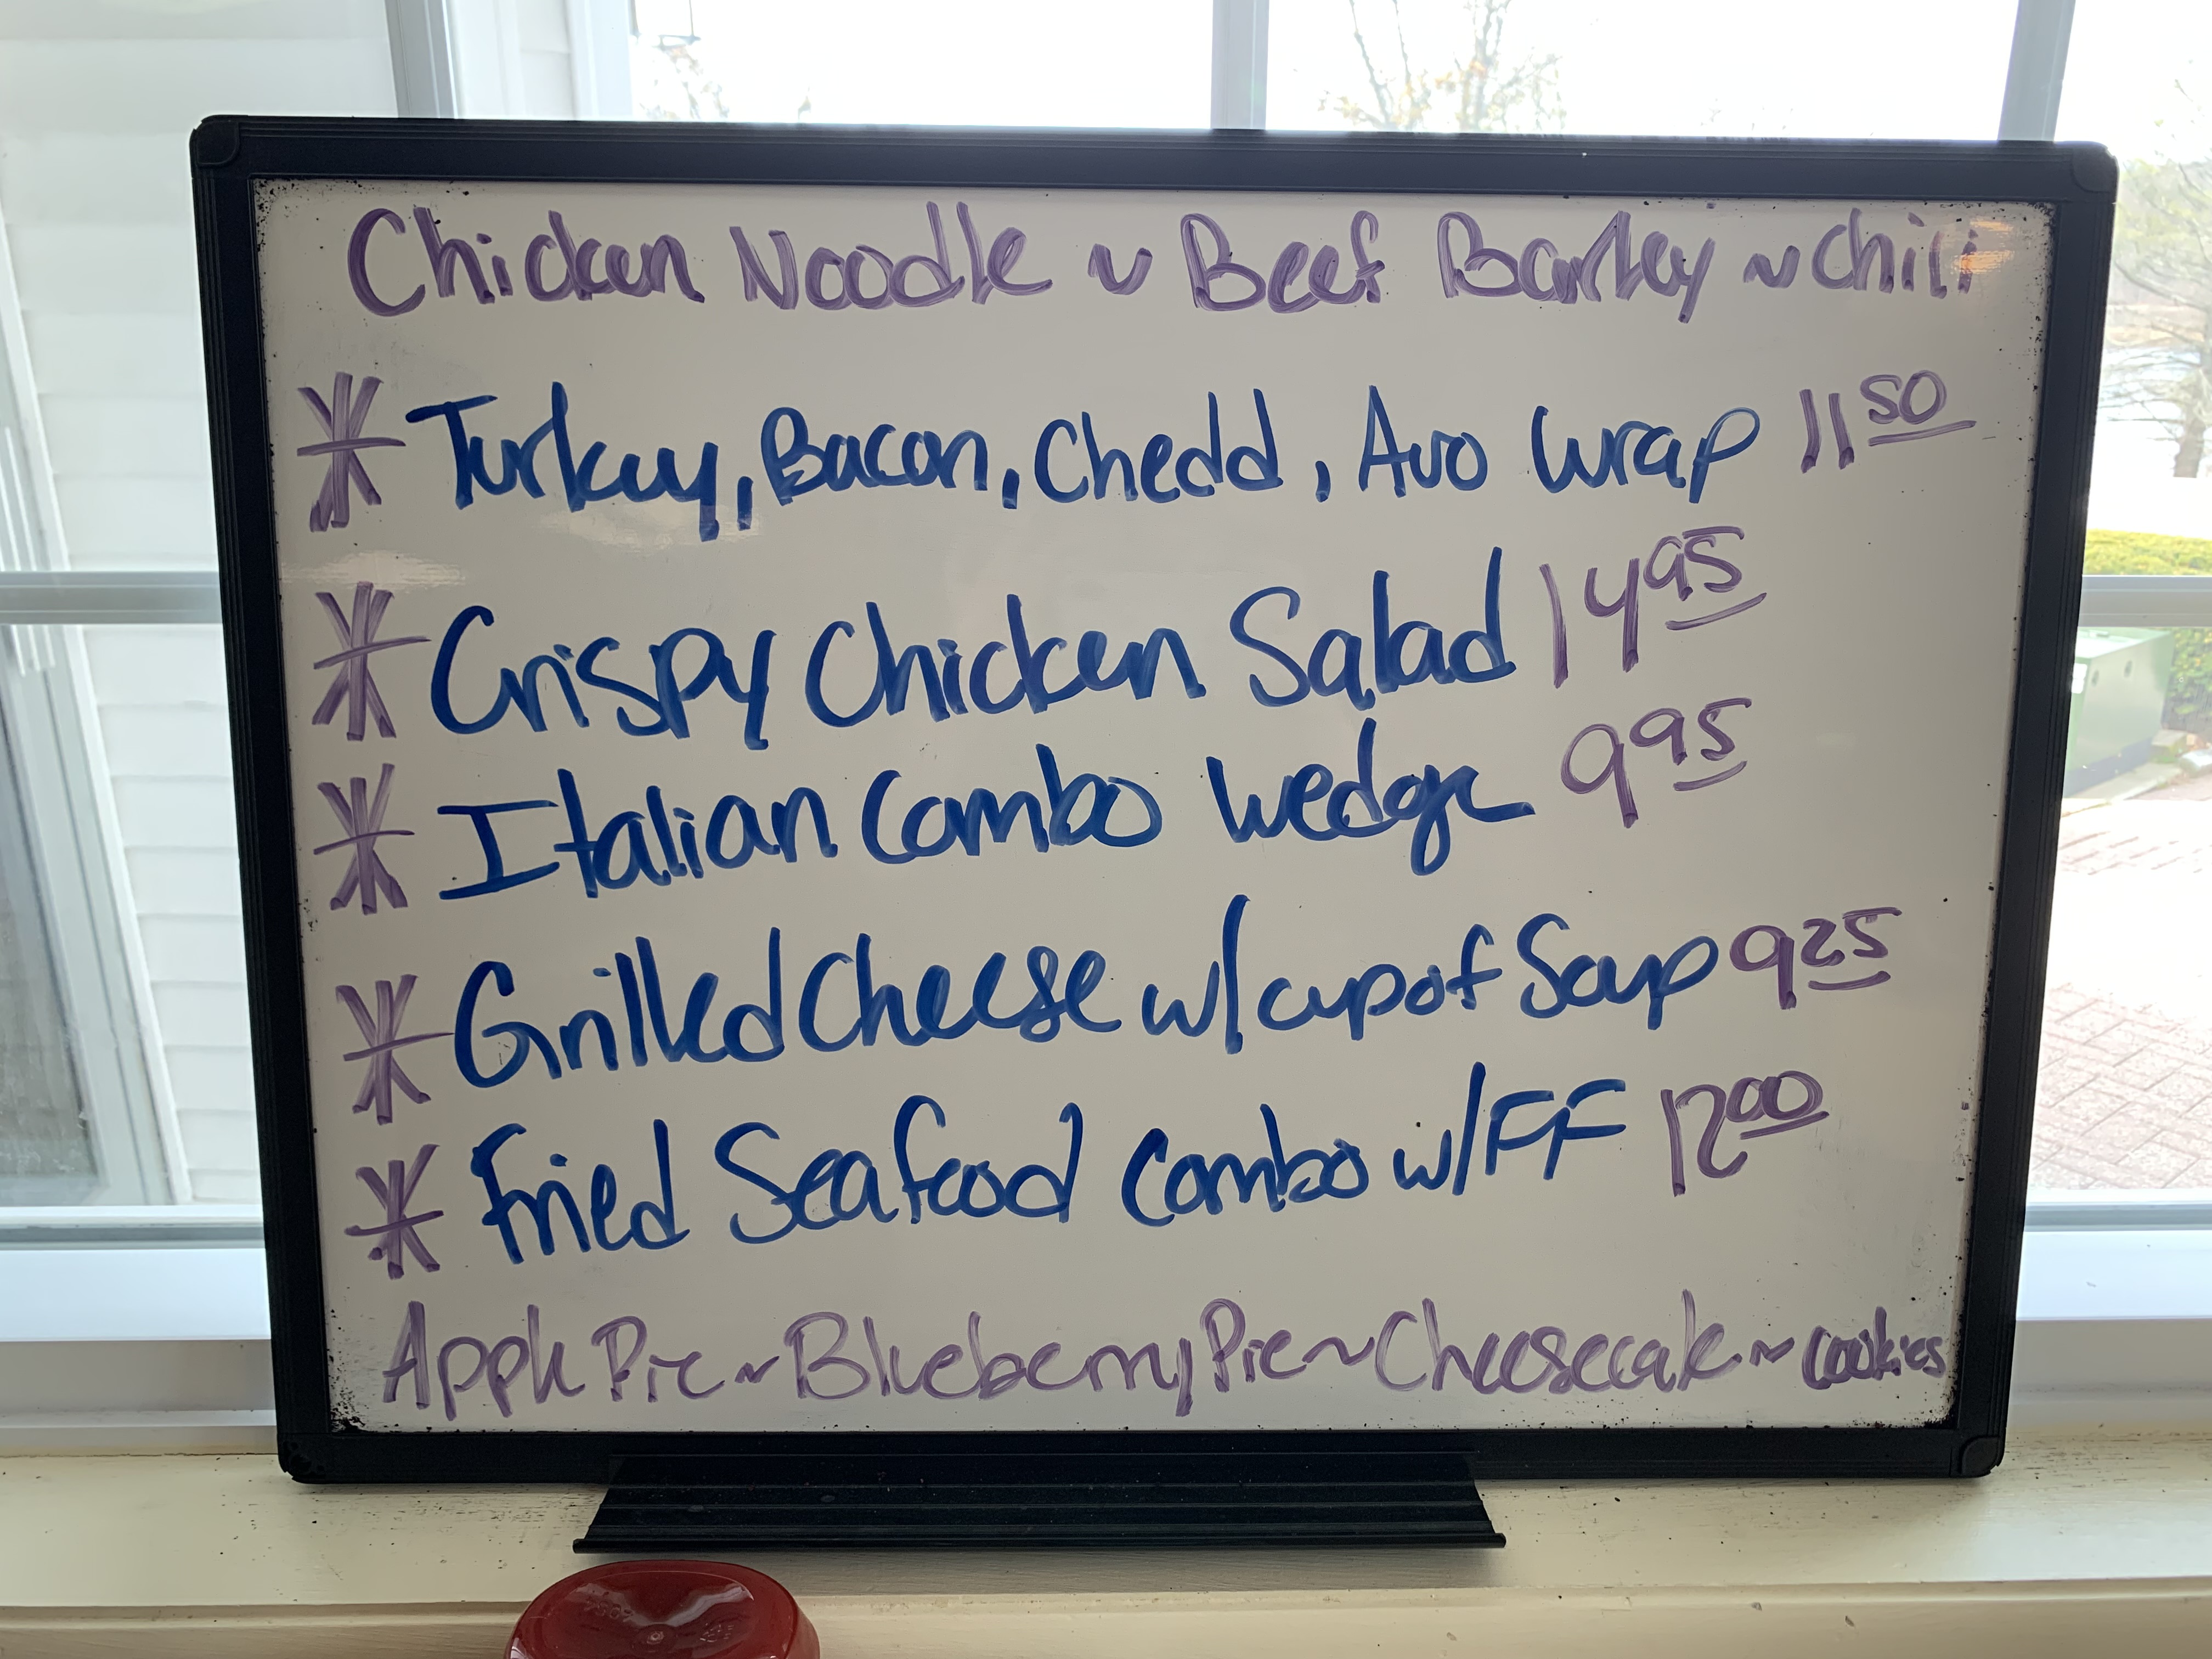 Chicken Noodle ~ Beef Barley ~ Chili
* Turkey, Bacon, Chedd, Avo Wrap 11 50
* Crispy Chicken Salad 14 95
* Italian Combo Wedge 9 95
* Grilled Cheese w/ cup of Soup 9 25
* Fried Seafood Combo w/ FF 12 00
Apple Pie ~ Blueberry Pie ~ Cheesecake ~ Cookies